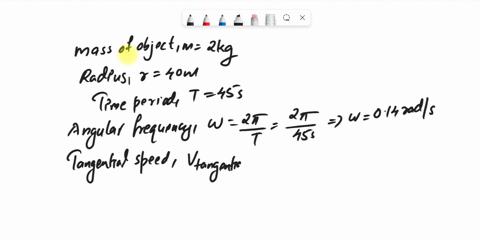 mass of object, m = 2kg
Radius, r = 40m
Time period, T = 45s
Angular frequency, w = 2π/T = 2π/45s ⇒ w = 0.14 rad/s
Tangential speed, Vtangentia